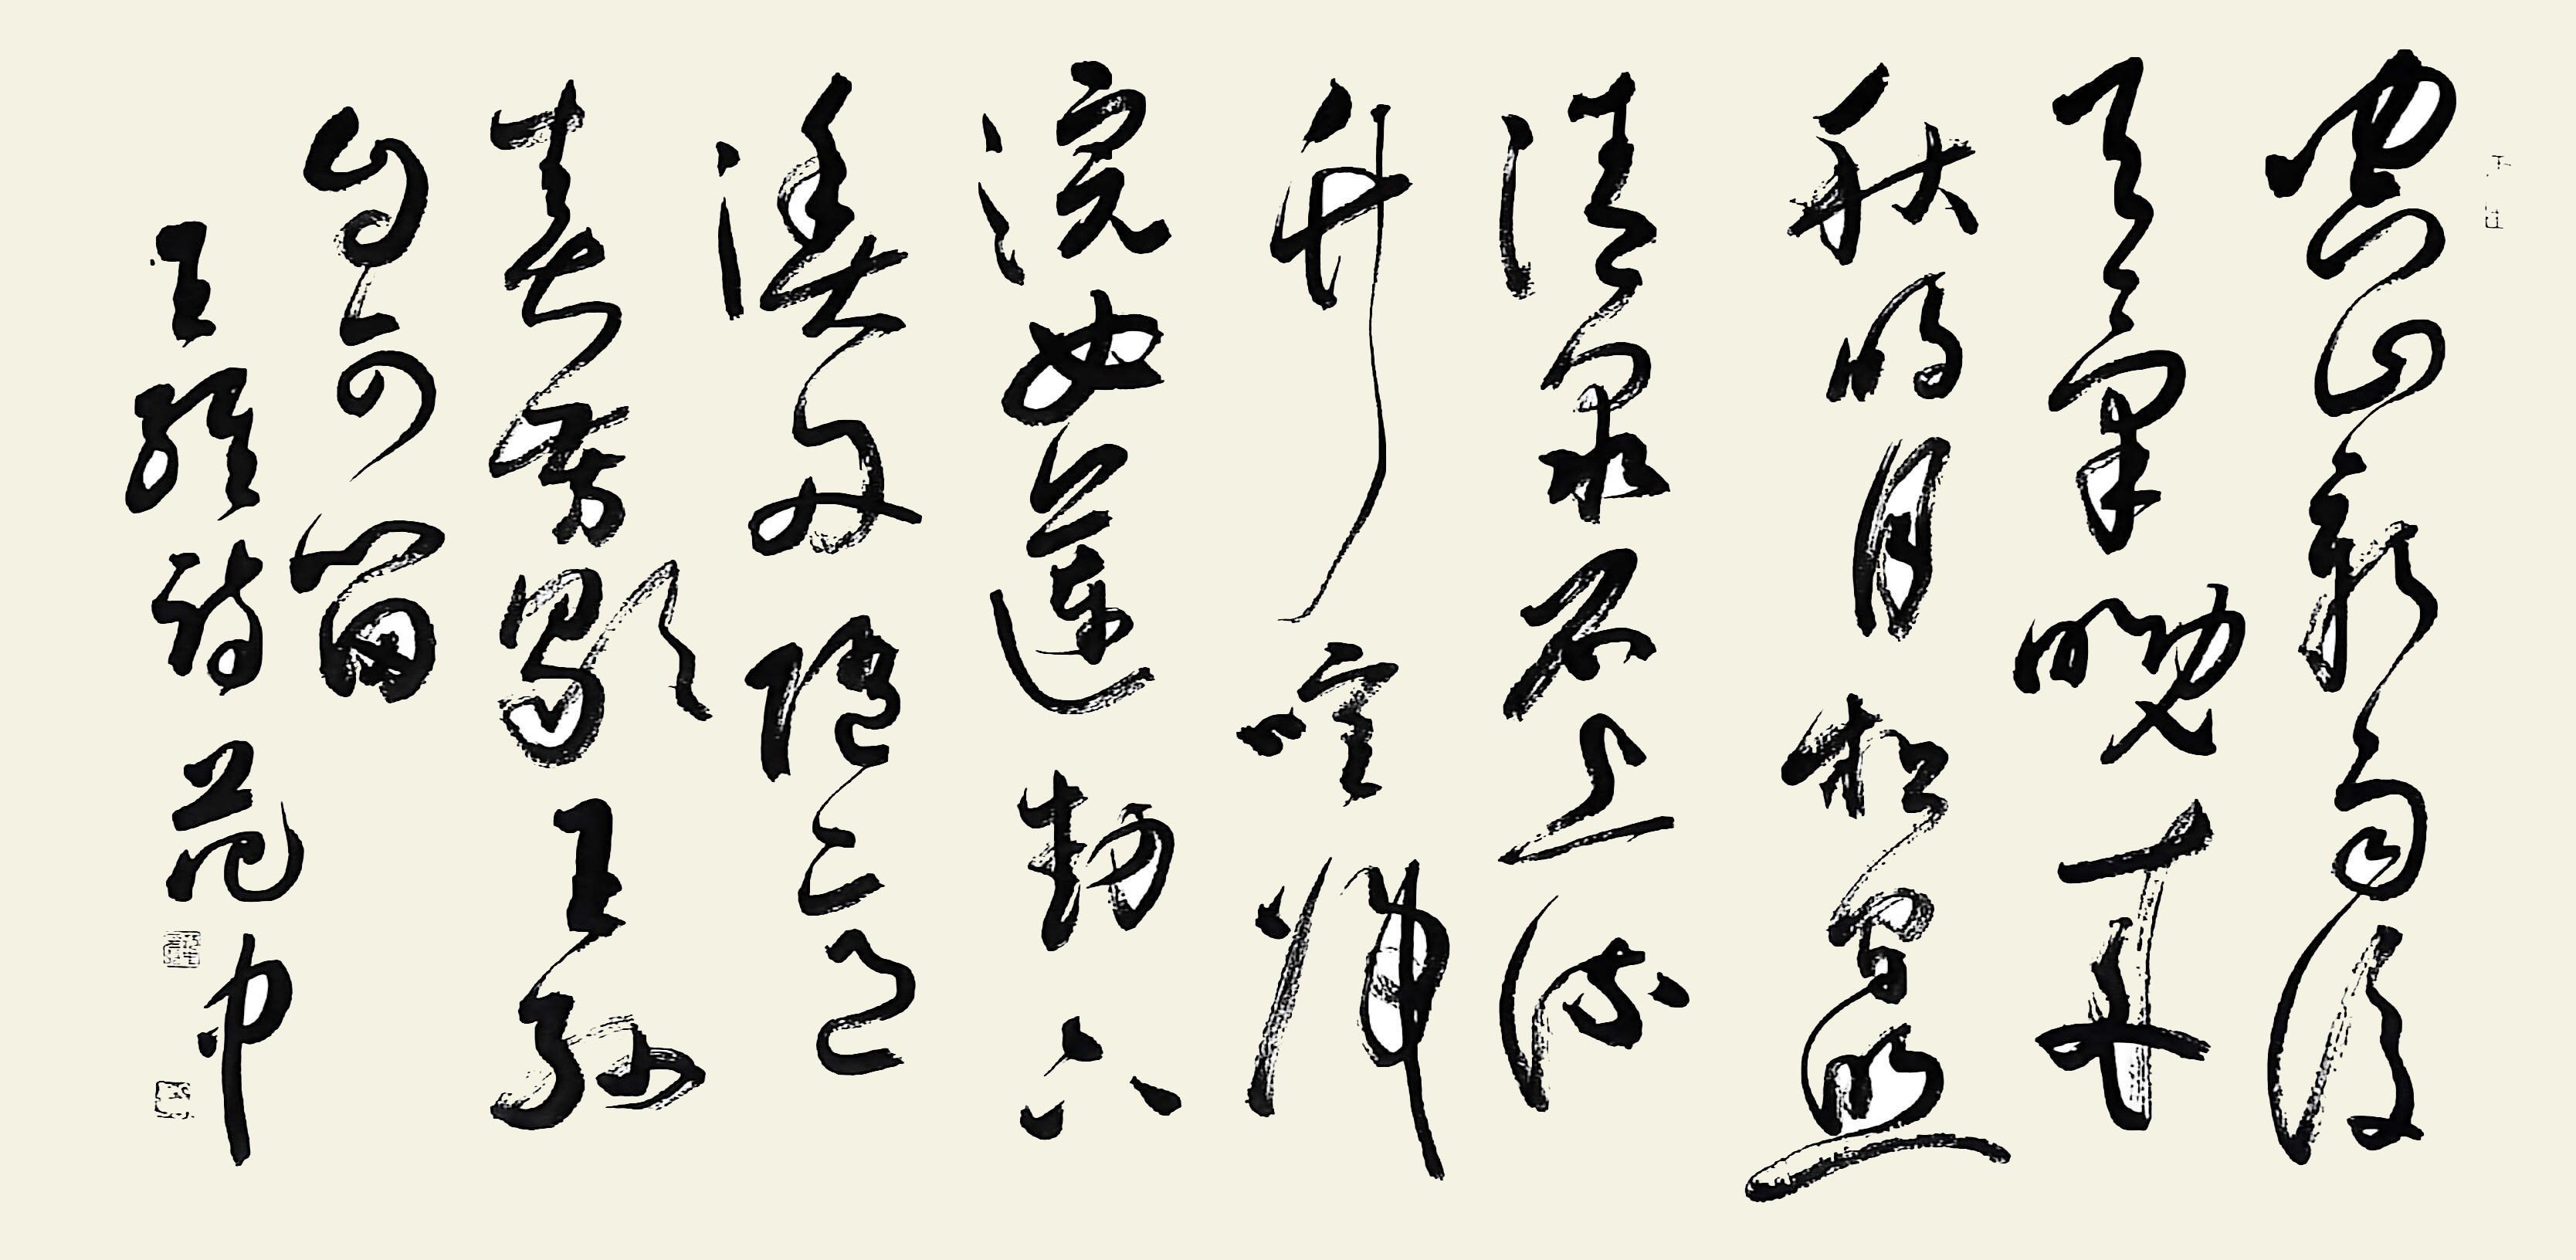 空山新雨後
天氣晚來
秋明月松間照
清泉石上流
竹喧歸
浣女蓮動下
漁舟隨意
春芳歇王孫
自可留
王維詩范中